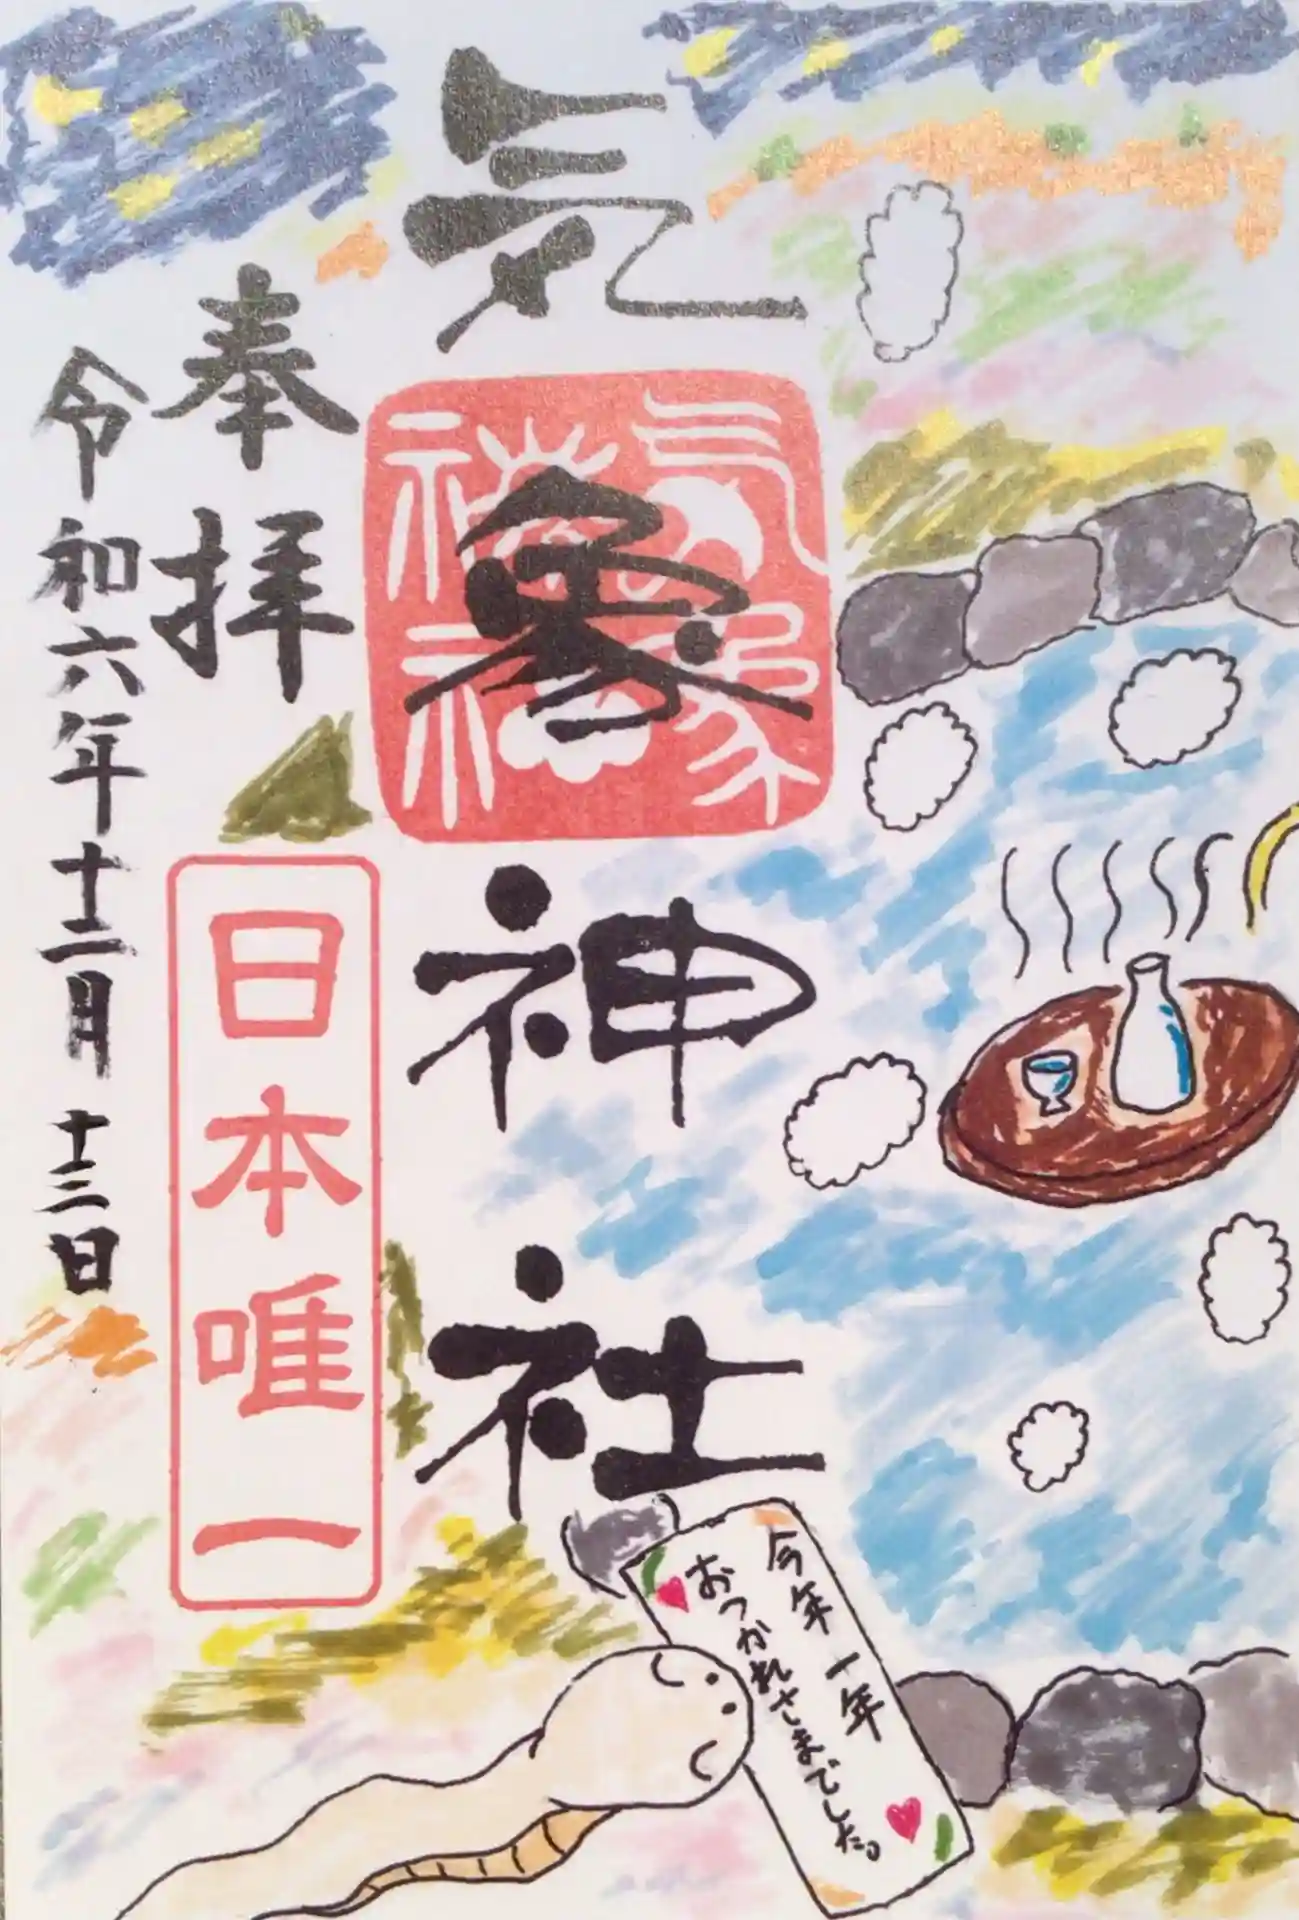 気象神社
気象神社
奉拝
日本唯一
令和六年十二月十三日
今年一年
おつかれさまでした。